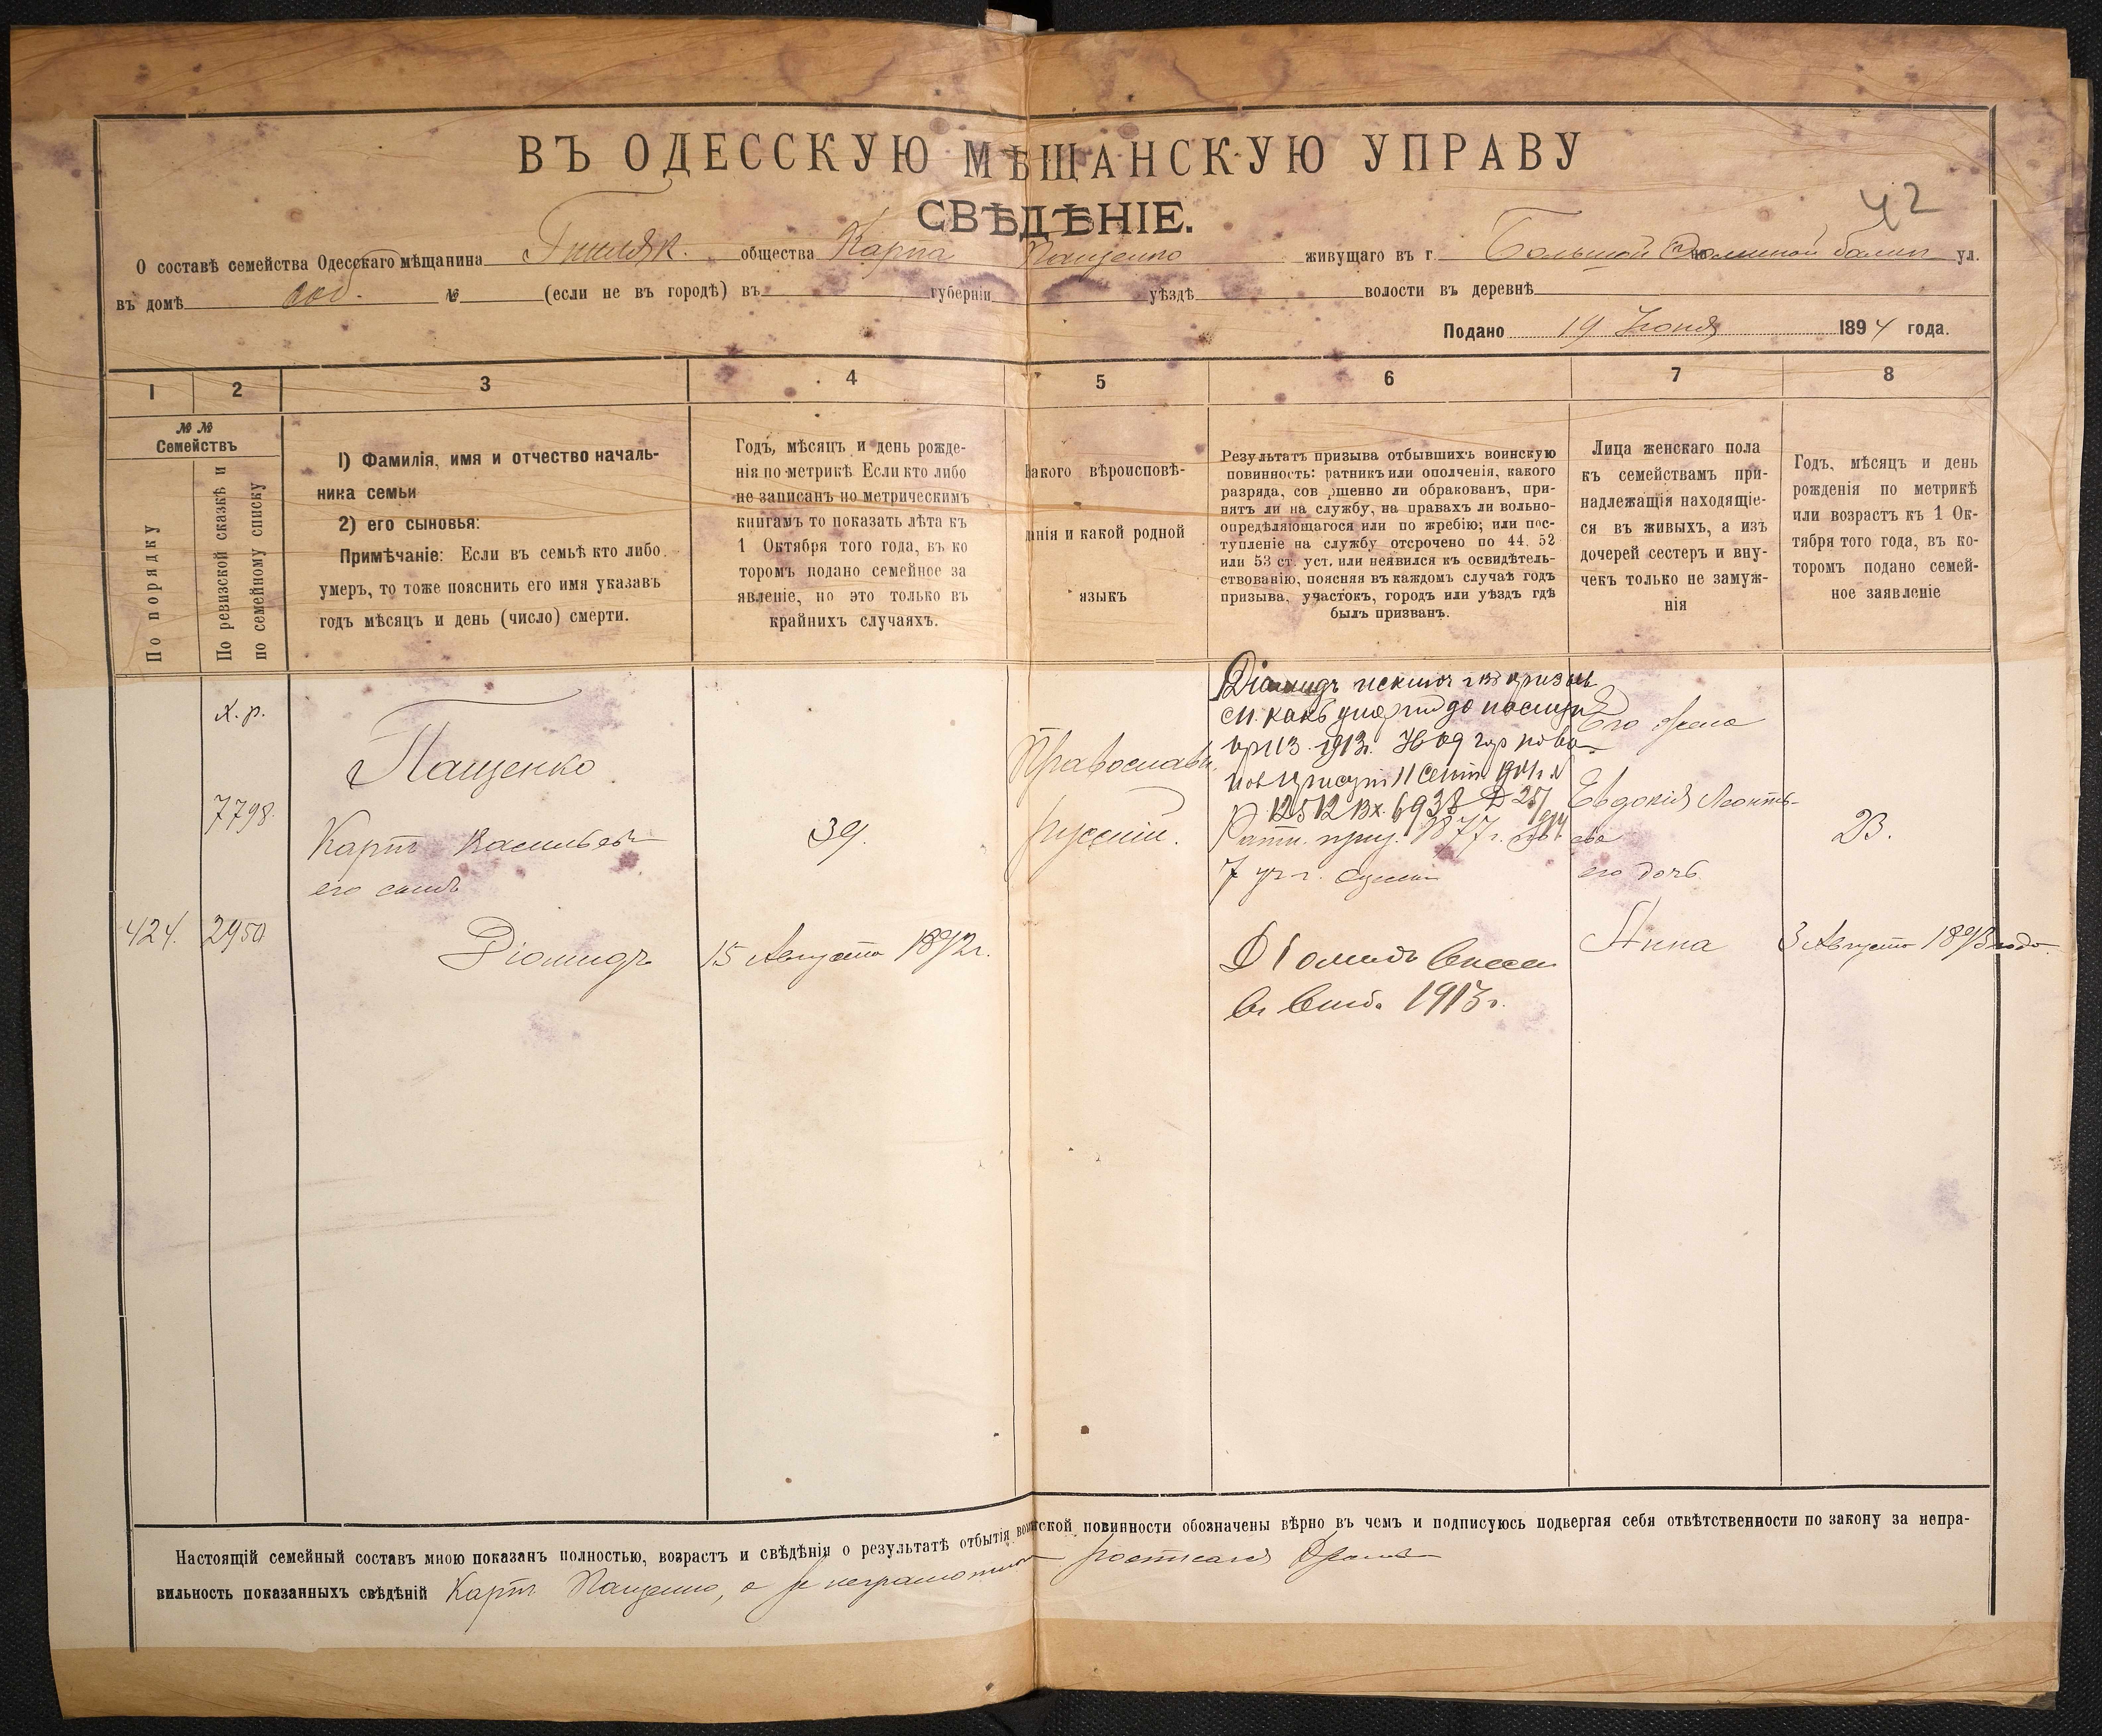 ВЪ ОДЕССКУЮ МѢЩАНСКУЮ УПРАВУ
42
СВѢДѢНІЕ.
О составѣ семейства Одесскаго мѣщанина общества Карпа Пащенко живущаго въ г. Большой балки ул.
въ домѣ соб. № (если не въ городѣ) въ губерніи уѣздѣ волости въ деревнѣ
Подано 19 Іюня 1894 года.
1 2 3 4 5 6 7 8
№ №
Семействъ
По порядку
По ревизской сказкѣ и
по семейному списку
1) Фамилія, имя и отчество началь-
ника семьи
2) его сыновья:
Примѣчаніе: Если въ семьѣ кто либо
умеръ, то тоже пояснить его имя указавъ
годъ мѣсяцъ и день (число) смерти.
Годъ, мѣсяцъ и день рожде-
нія по метрикѣ Если кто либо
не записанъ по метрическимъ
книгамъ то показать лѣта къ
1 Октября того года, въ ко
торомъ подано семейное за
явленіе, но это только въ
крайнихъ случаяхъ.
Какого вѣроисповѣ-
данія и какой родной
языкъ
Результатъ призыва отбывшихъ воинскую
повинность: ратникъ или ополченія, какого
разряда, сов ршенно ли обракованъ, при-
нятъ ли на службу, на правахъ ли вольно-
опредѣляющагося или по жребію; или пос-
тупленіе на службу отсрочено по 44. 52
или 53 ст. уст. или неявился къ освидѣтель-
ствованію, поясняя въ каждомъ случаѣ годъ
призыва, участокъ, городъ или уѣздъ гдѣ
былъ призванъ.
Лица женскаго пола
къ семействамъ при-
надлежащія находящіе-
ся въ живыхъ, а изъ
дочерей сестеръ и вну-
чекъ только не замуж-
нія
Годъ, мѣсяцъ и день
рожденія по метрикѣ
или возрастъ къ 1 Ок-
тября того года, въ ко-
торомъ подано семей-
ное заявленіе
х. р.
7798.
424. 2950
Пащенко
Карпъ Васильевъ
его сынъ
Діомидъ
39.
15 Августа 1892 г.
Православн.
русскій.
Діомидъ исключ
какъ до
1913 г.
12512 Вх. 6938
Ратн. 1877 г.
7 уч.
Діомидъ внесен
въ 1913 г.
Его жена
Евдокія Леонть-
ева
его дочь
Анна
23.
3 Августа 1893 года
Настоящій семейный составъ мною показанъ полностью, возрастъ и свѣдѣнія о результатѣ отбытія воинской повинности обозначены вѣрно въ чемъ и подписуюсь подвергая себя отвѣтственности по закону за непра-
вильность показанныхъ свѣдѣній Карпъ Пащенко, а